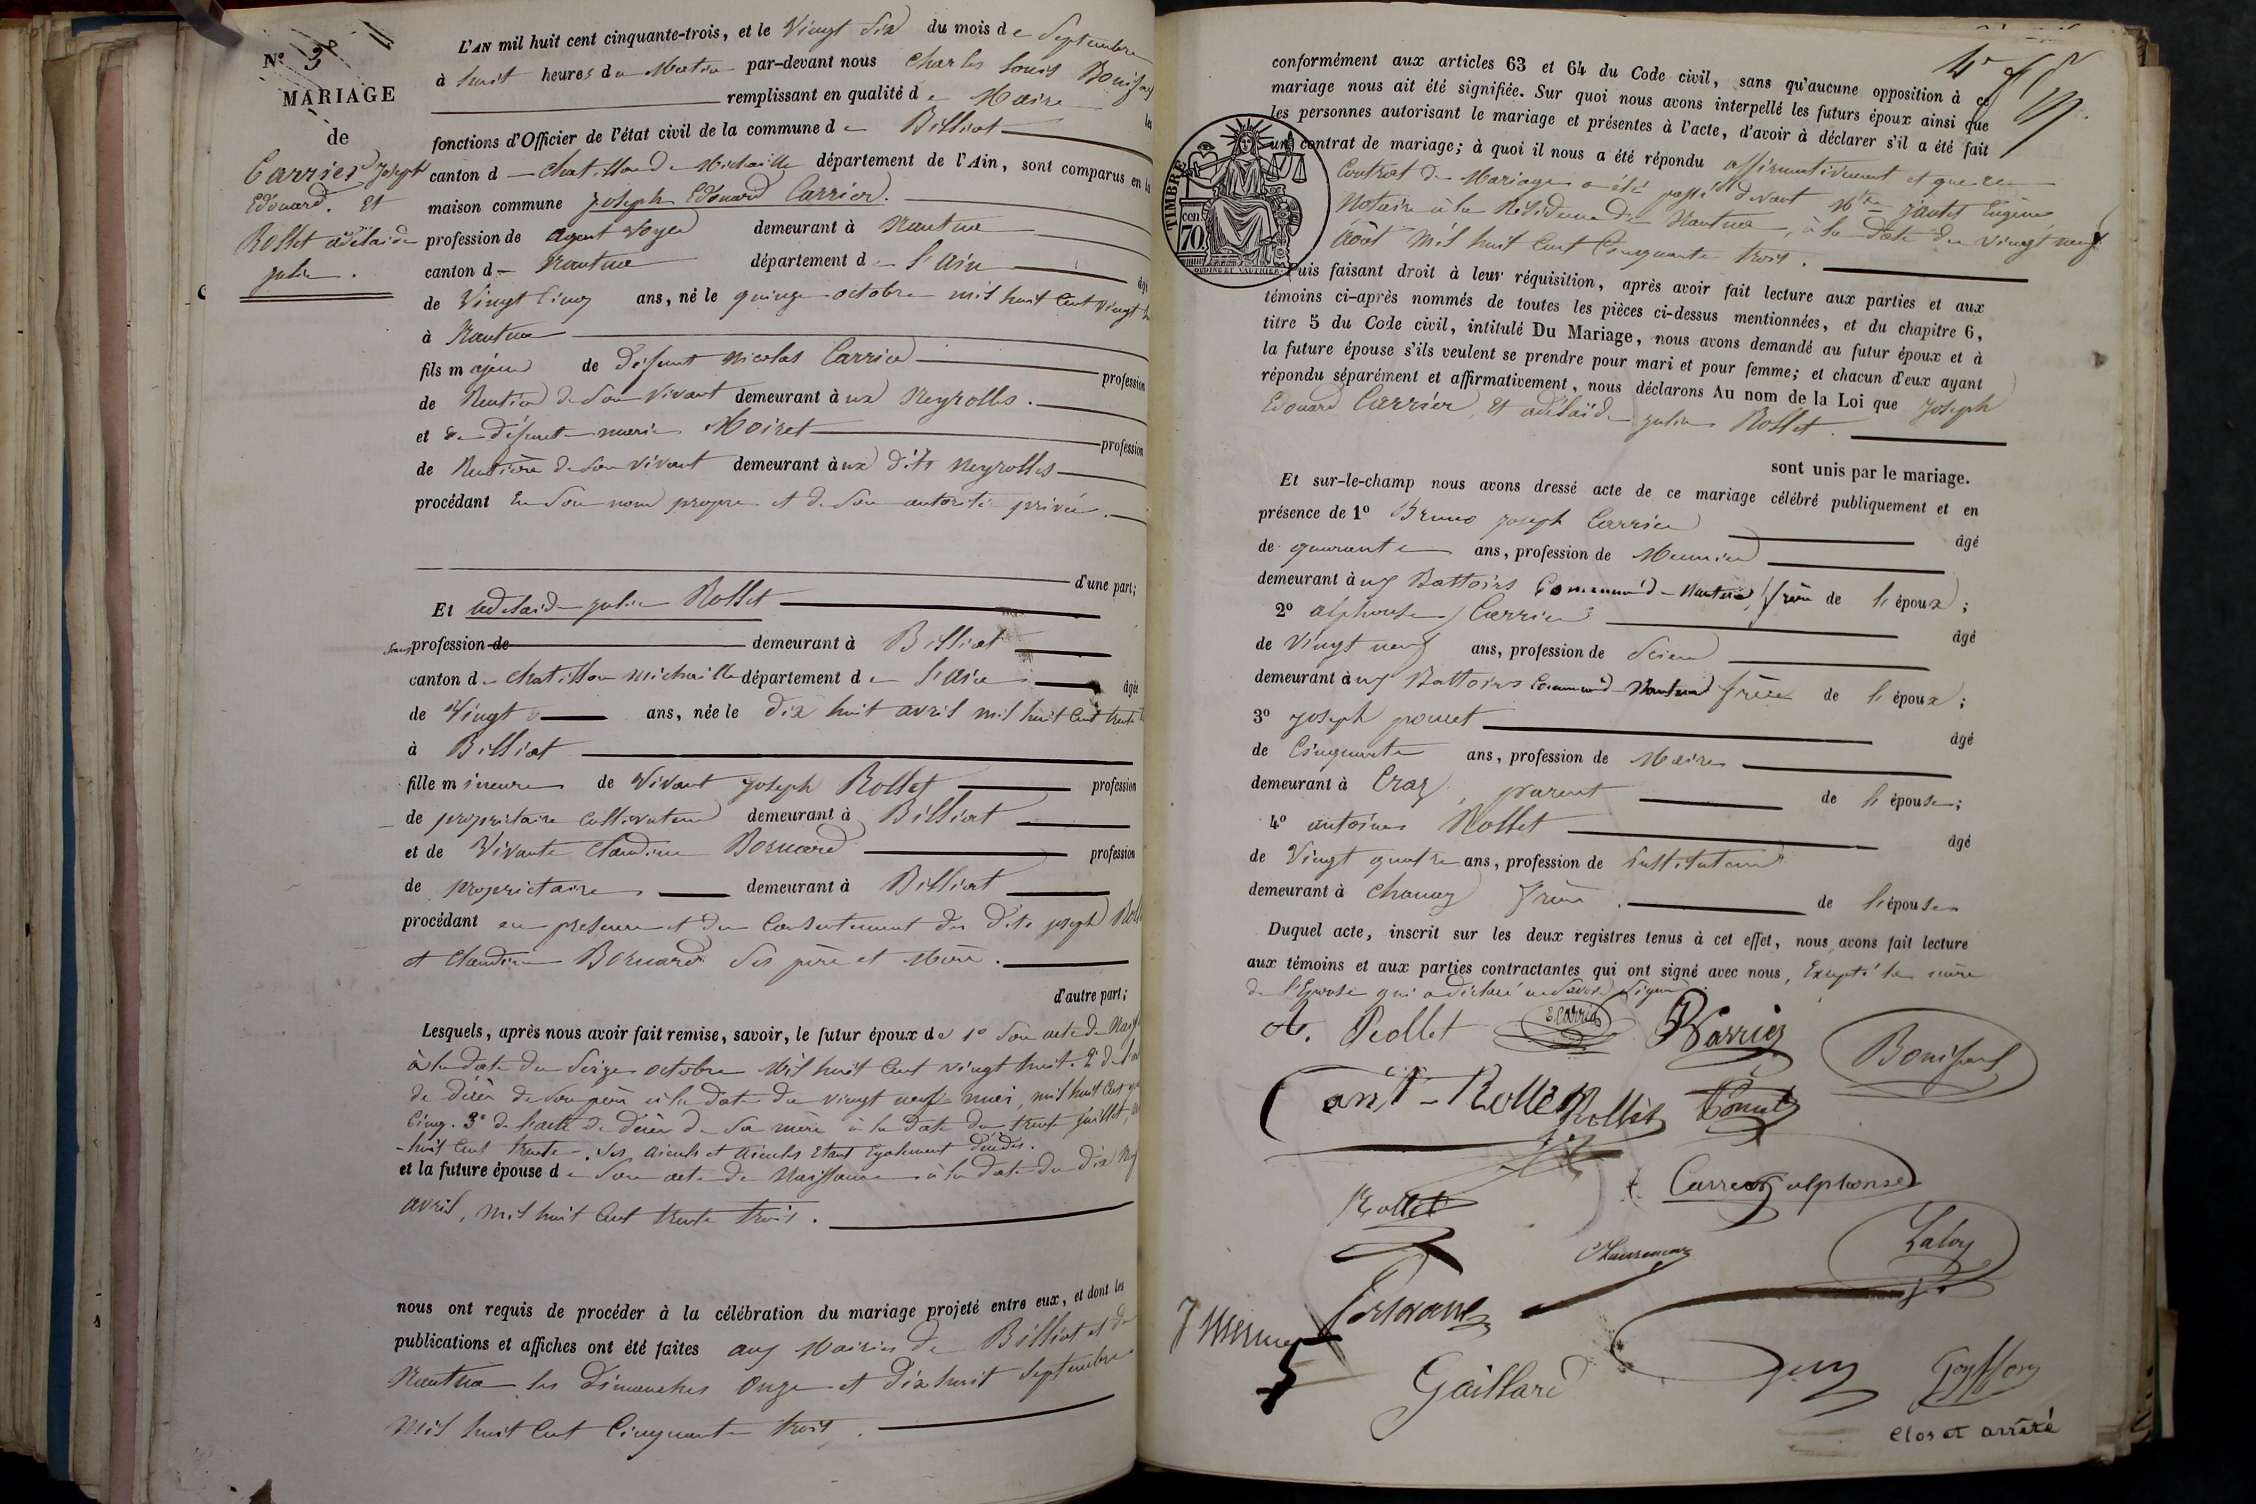 N° 3
MARIAGE
de
Carrier Joseph
Edouard. Et
Rollet adélaïde
julie.
L'AN mil huit cent cinquante-trois, et le Vingt Six du mois de Septembre
à huit heures du Matin par-devant nous Charles Louis
remplissant en qualité de Maire les
fonctions d'Officier de l'état civil de la commune de Billiat
canton de Chatillon de Michaille département de l'Ain, sont comparus en la
maison commune Joseph Edouard Carrier.
profession de agent Voyer demeurant à Nantua
canton de Nantua département de l'Ain âgé
de Vingt Cinq ans, né le quinze octobre mil huit Cent Vingt
à Nantua
fils majeur de défunt Nicolas Carrier profession
de Rentier de Son Vivant demeurant aux Neyrolles.
et de défunte marie Moiret profession
de Rentière de Son Vivant demeurant aux dits Neyrolles
procédant En Son nom propre et de Son autorité privée.
d'une part;
Et adelaide julie Rollet
Sans profession de demeurant à Billiat
canton de Chatillon Michaille département de l'Ain âgée
de Vingt ans, née le dix huit avril mil huit Cent trente
à Billiat
fille mineure de Vivant Joseph Rollet profession
de propriétaire Cultivateur demeurant à Billiat
et de Vivante Claudine Bornard profession
de propriétaire demeurant à Billiat
procédant en présence et du Consentement des dits joseph
et Claudine Bornard Ses père et Mère.
d'autre part;
Lesquels, après nous avoir fait remise, savoir, le futur époux de 1° Son acte de
à la date du Seize octobre Mil huit Cent vingt huit. 2° de
de décès de Son père à la date du vingt neuf mai, mil huit Cent
Cinq. 3° de l'acte de décès de Sa mère à la date du trente juillet,
huit Cent trente. Ses aieuls et aieules Etant Egalement décédés.
et la future épouse de Son acte de Naissance à la date du dix
avril, mil huit Cent trente trois.
nous ont requis de procéder à la célébration du mariage projeté entre eux, et dont les
publications et affiches ont été faites aux Mairies de Billiat et de
Nantua les dimanches Onze et dix huit Septembre
Mil huit Cent Cinquante trois.
conformément aux articles 63 et 64 du Code civil, sans qu'aucune opposition à ce
mariage nous ait été signifiée. Sur quoi nous avons interpellé les futurs époux ainsi que
les personnes autorisant le mariage et présentes à l'acte, d'avoir à déclarer s'il a été fait
un contrat de mariage; à quoi il nous a été répondu affirmativement et que ce
Contrat de Mariage a été passé devant Mtre jantet Eugène
Notaire à la Résidence de Nantua, à la date du vingt neuf
Août Mil huit Cent Cinquante trois.
TIMBRE
cen
70
OUDINE ET VAUTHIER
Puis faisant droit à leur réquisition, après avoir fait lecture aux parties et aux
témoins ci-après nommés de toutes les pièces ci-dessus mentionnées, et du chapitre 6,
titre 5 du Code civil, intitulé Du Mariage, nous avons demandé au futur époux et à
la future épouse s'ils veulent se prendre pour mari et pour femme; et chacun d'eux ayant
répondu séparément et affirmativement, nous déclarons Au nom de la Loi que Joseph
Edouard Carrier, Et adélaïde julie Rollet.
sont unis par le mariage.
Et sur-le-champ nous avons dressé acte de ce mariage célébré publiquement et en
présence de 1° Bruno joseph Carrier âgé
de quarante ans, profession de Meunier
demeurant aux Battoirs Commune de Nantua, frère de l'époux;
2° alphonse Carrier âgé
de Vingt neuf ans, profession de Scieur
demeurant aux Battoirs Commune de Nantua frère de l'époux;
3° joseph poncet âgé
de Cinquante ans, profession de Maire
demeurant à Craz, parent de l'épouse;
4° antoine Rollet âgé
de Vingt quatre ans, profession de instituteur
demeurant à Chanay frère. de l'épouse
Duquel acte, inscrit sur les deux registres tenus à cet effet, nous avons fait lecture
aux témoins et aux parties contractantes qui ont signé avec nous, Excepté la mère
de l'Epouse qui a déclaré ne Savoir Signer
A. Rollet E. Carrier B Carrier
ant - Rollet Rollet Poncet
Rollet Carrier alphonse
Gaillard
Clos et arrêté